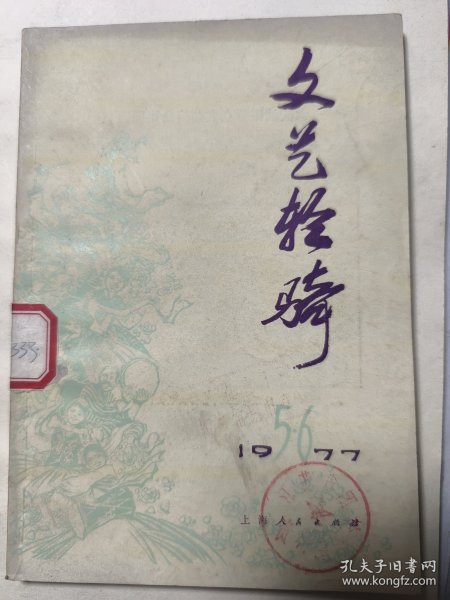 文艺轻骑
1977
56
上海人民出版社
335
孔夫子旧书网
www.kongfz.com